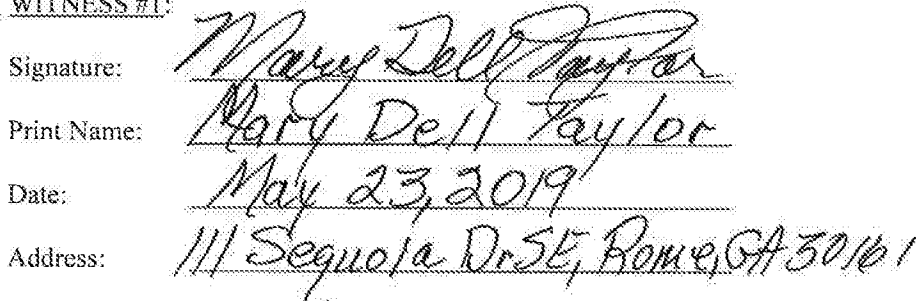 WITNESS #1:
Signature: Mary Dell Taylor
Print Name: Mary Dell Taylor
Date: May 23, 2019
Address: 111 Sequoia Dr SE, Rome, GA 30161